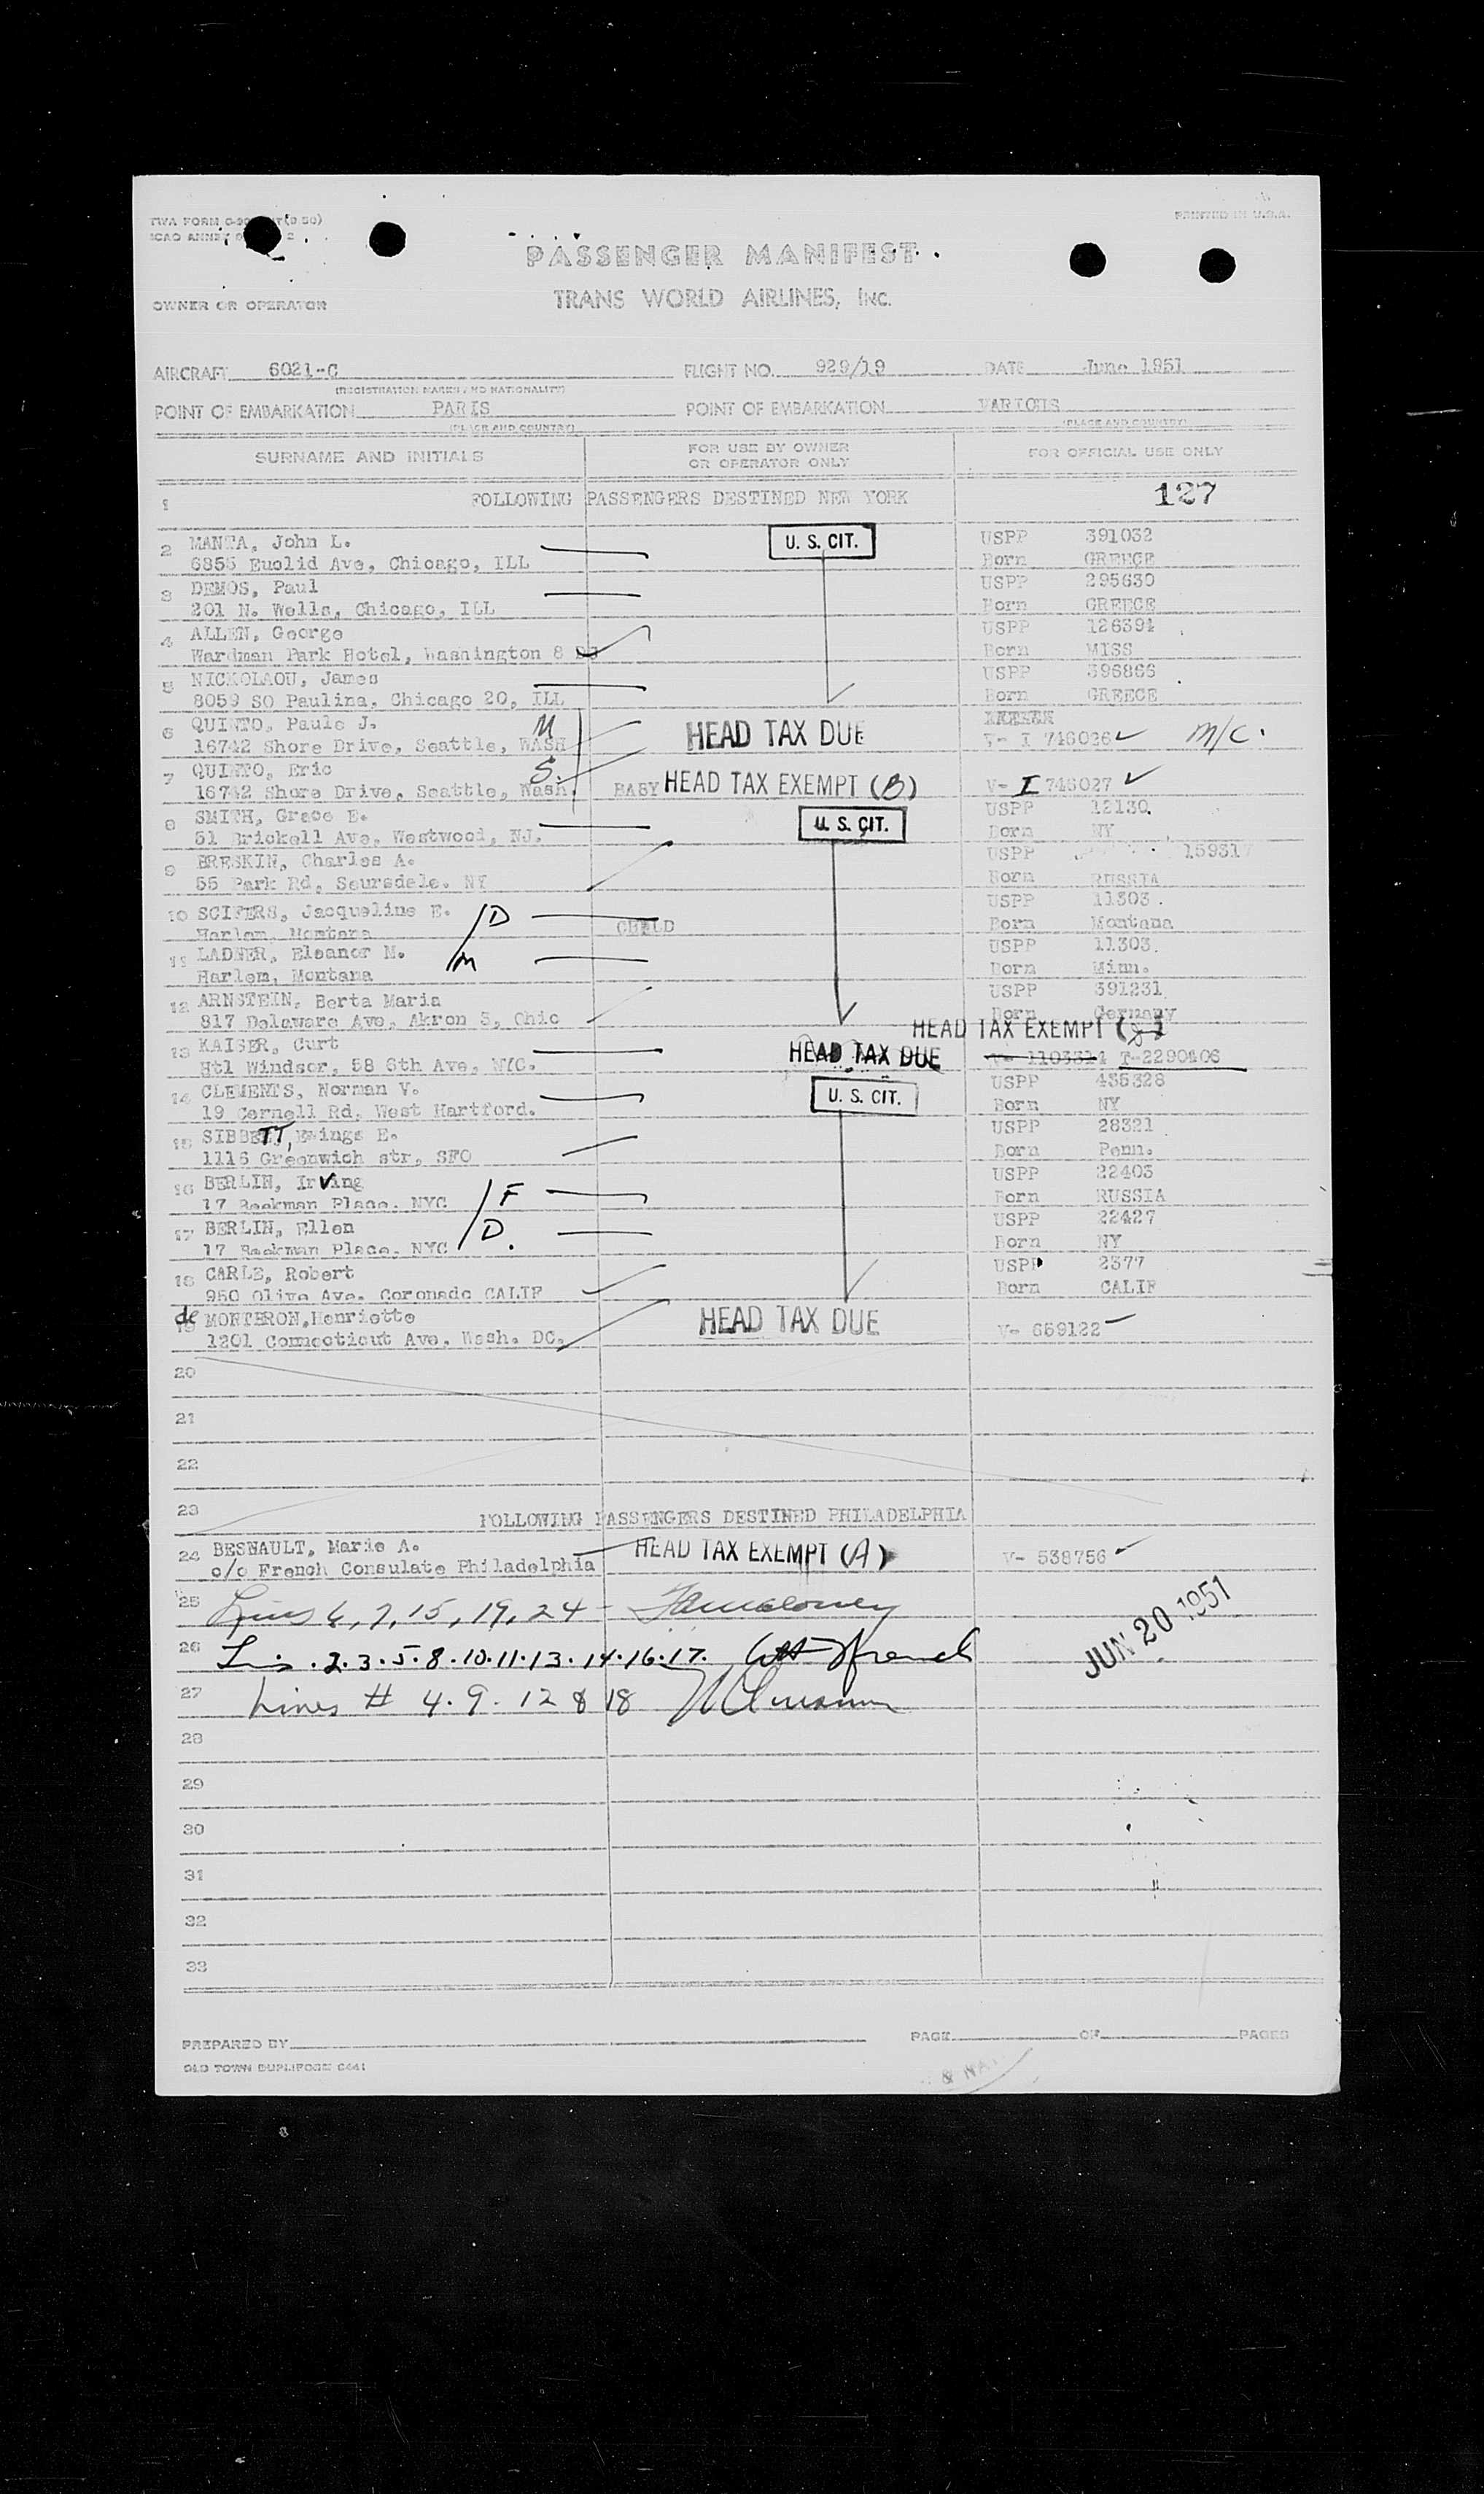 PRINTED IN U.S.A.
PASSENGER MANIFEST
OWNER OR OPERATOR TRANS WORLD AIRLINES, INC.
AIRCRAFT 6021-C FLIGHT NO. 929/19 DATE June 1951
POINT OF EMBARKATION PARIS POINT OF EMBARKATION VARIOUS
(PLACE AND COUNTRY) (PLACE AND COUNTRY)
SURNAME AND INITIALS FOR USE BY OWNER OR OPERATOR ONLY FOR OFFICIAL USE ONLY
1 FOLLOWING PASSENGERS DESTINED NEW YORK 127
2 MANTA, John L. U. S. CIT. USPP 391032
6855 Euclid Ave, Chicago, ILL Born GREECE
3 DEMOS, Paul USPP 295630
201 N. Wells, Chicago, ILL Born GREECE
4 ALLEN, George USPP 126394
Wardman Park Hotel, Washington 8 Born MISS
5 NICKOLAOU, James USPP 396866
8059 SO Paulina, Chicago 20, ILL Born GREECE
6 QUINTO, Paule J. M HEAD TAX DUE
16742 Shore Drive, Seattle, WASH V- I 746026 M/C.
7 QUINTO, Eric S.
16742 Shore Drive, Seattle, Wash. BABY HEAD TAX EXEMPT (B) V- I 746027
8 SMITH, Grace E. U. S. CIT. USPP 12130.
51 Brickell Ave, Westwood, NJ. Born NY
9 BRESKIN, Charles A. USPP 159317
55 Park Rd, Scursdale. NY Born RUSSIA
10 SCIFERS, Jacqueline E. /D CHILD USPP 11303.
Harlem, Montana Born Montana
11 LADNER, Eleanor M. /M USPP 11303.
Harlem, Montana Born Minn.
12 ARNSTEIN, Berta Maria USPP 391231
817 Delaware Ave, Akron 5, Ohio Born Germany
HEAD TAX EXEMPT
13 KAISER, Curt HEAD TAX DUE V- 1103314 T-2290406
Htl Windsor, 58 6th Ave, NYC.
14 CLEMENTS, Norman V. U. S. CIT. USPP 435328
19 Cornell Rd, West Hartford. Born NY
15 SIBBETT, Ewings E. USPP 28321
1116 Greenwich str, SFO Born Penn.
16 BERLIN, Irving /F USPP 22403
17 Beekman Place. NYC Born RUSSIA
17 BERLIN, Ellen /D. USPP 22427
17 Beekman Place. NYC Born NY
18 CARLE, Robert USPP 2377
950 Olive Ave. Coronado CALIF Born CALIF
19 de MONTBRON, Henriette HEAD TAX DUE
1201 Connecticut Ave. Wash. DC. V- 659122
20
21
22
23 FOLLOWING PASSENGERS DESTINED PHILADELPHIA
24 BESNAULT, Marie A. HEAD TAX EXEMPT (A)
c/o French Consulate Philadelphia V- 538756
25 Lines 6, 7, 15, 19, 24 -
JUN 20 1951
26 2. 3. 5. 8. 10. 11. 13. 14. 16. 17.
27 Lines # 4. 9. 12 & 18
28
29
30
31
32
33
PREPARED BY PAGE OF PAGES